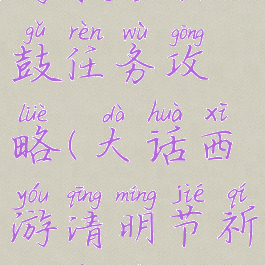 gǔ rèn wù gōng
鼓任务攻
lüè dà huà xī
略(大话西
yóu qīng míng jié qí
游清明节祈